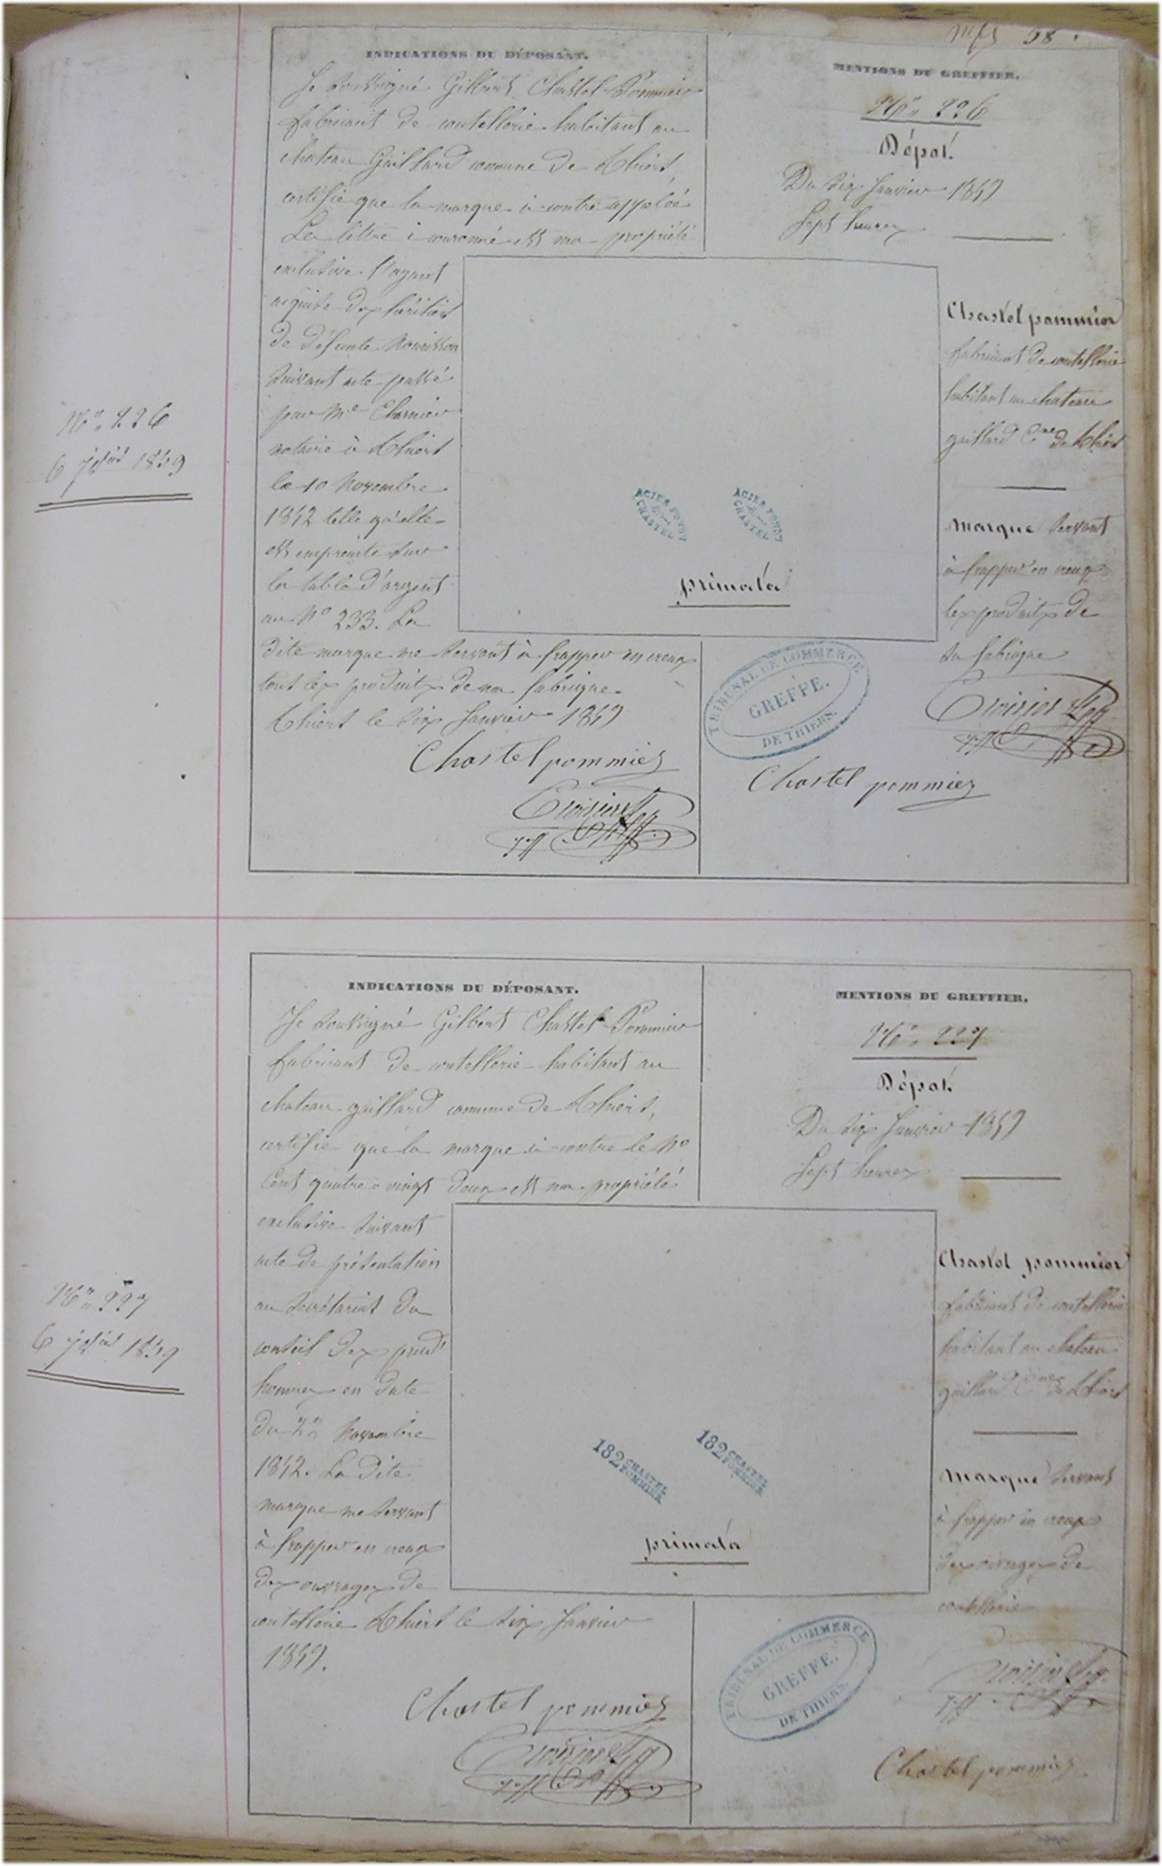 58
INDICATIONS DU DÉPOSANT.
Je soussigné Gilbert Chastel Pommier
fabricant de coutellerie habitant au
chateau Gaillard commune de Thiers,
certifie que la marque ci contre
La lettre i couronné est ma propriété
exclusive l'ayant
acquise des héritiers
de défunte
suivant acte passé
par Me
notaire à Thiers
le 10 Novembre
1812 telle qu'elle
est empreinte sur
la table d'argent
au No 233. La
dite marque me servant à frapper en creux
tout les produits de ma fabrique.
Thiers le six Janvier 1859
Chastel pommier
MENTIONS DU GREFFIER.
No 226
Dépot.
Du six Janvier 1859
Sept heures
Chastel pommier
fabricant de coutellerie
habitant au chateau
gaillard Cne de Thiers
marque servant
à frapper en creux
les produits de
sa fabrique
Chastel pommier
ACIER FONDU
CHASTEL
ACIER FONDU
CHASTEL
primata
TRIBUNAL DE COMMERCE
GREFFE.
DE THIERS.
No 226
6 1859
INDICATIONS DU DÉPOSANT.
Je soussigné Gilbert Chastel Pommier
fabricant de coutellerie habitant au
chateau gaillard commune de Thiers,
certifie que la marque ci contre le No
Cent quatre-vingt deux est ma propriété
exclusive suivant
acte de présentation
au secrétariat du
conseil des prud'
hommes en date
du 22 Novembre
1812. La dite
marque me servant
à frapper en creux
des ouvrages de
coutellerie Thiers le six Janvier
1859.
Chastel pommier
MENTIONS DU GREFFIER.
No 227
Dépot.
Du six Janvier 1859
Sept heures
Chastel pommier
fabricant de coutellerie
habitant au chateau
gaillard Cne de Thiers
marque servant
à frapper en creux
des ouvrages de
coutellerie
Chastel pommier
182 CHASTEL
POMMIER
182 CHASTEL
POMMIER
primata
TRIBUNAL DE COMMERCE
GREFFE.
DE THIERS.
No 227
6 1859